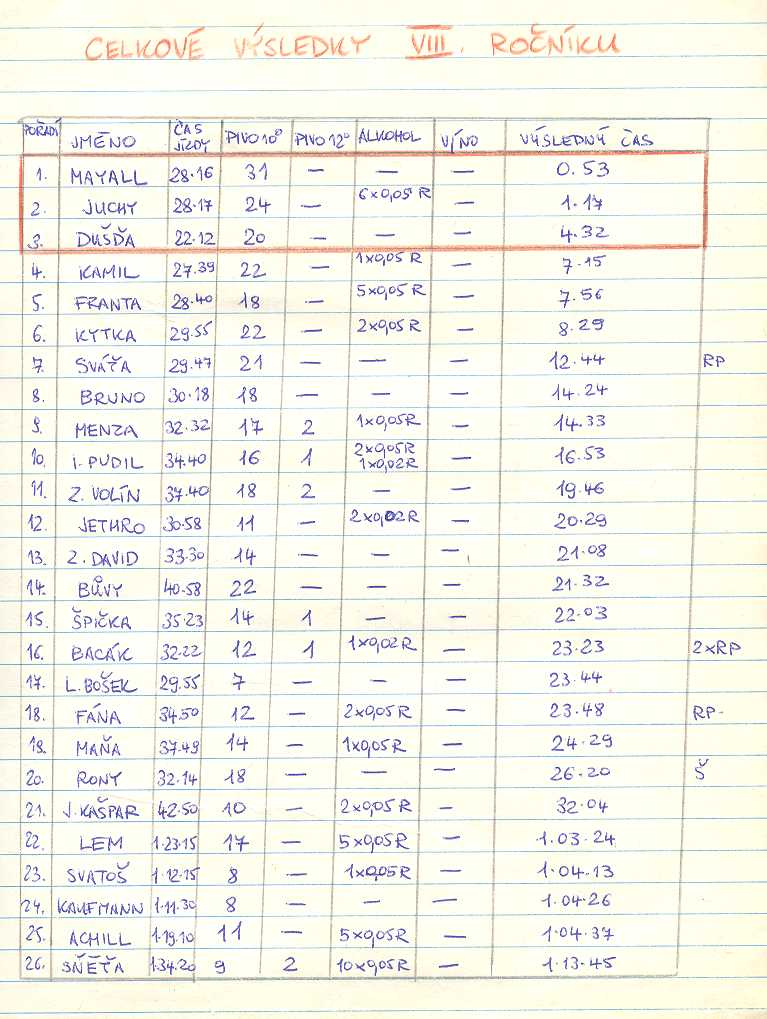 CELKOVÉ VÝSLEDKY VIII. ROČNÍKU
POŘADÍ JMÉNO ČAS JÍZDY PIVO 10° PIVO 12° ALKOHOL VÍNO VÝSLEDNÝ ČAS
1. MAYALL 28·16 31 — — — 0.53
2. JUCHY 28·17 24 — 6×0,05 R — 1·17
3. DUŠĎA 22·12 20 — — — 4.32
4. KAMIL 27.39 22 — 1×0,05 R — 7·15
5. FRANTA 28·40 18 — 5×0,05 R — 7.56
6. KYTKA 29.55 22 — 2×0,05 R — 8·29
7. SVÁŤA 29.47 21 — — — 12.44 RP
8. BRUNO 30·18 18 — — — 14·24
9. MENZA 32.32 17 2 1×0,05R — 14·33
10. I. PUDIL 34.40 16 1 2×0,05R 1×0,02R — 16.53
11. Z. VOLÍN 37.40 18 2 — — 19.46
12. JETHRO 30·58 11 — 2×0,02R — 20·29
13. Z. DAVID 33·30 14 — — — 21·08
14. BŮVY 40·58 22 — — — 21.32
15. ŠPIČKA 35·23 14 1 — — 22·03
16. BACÁK 32·22 12 1 1×0,02R — 23·23 2×RP
17. L. BOŠEK 29.55 7 — — — 23.44
18. FÁNA 34.50 12 — 2×0,05 R — 23·48 RP-
19. MAŇA 37·49 14 — 1×0,05R — 24·29
20. RONY 32·14 18 — — — 26·20 Š
21. J. KAŠPAR 42.50 10 — 2×0,05 R — 32·04
22. LEM 1·23·15 17 — 5×0,05R — 1.03·24
23. SVATOŠ 1·12·15 8 — 1×0,05R — 1·04·13
24. KAUFMANN 1·11·30 8 — — — 1·04·26
25. ACHILL 1·19.10 11 — 5×0,05R — 1·04·37
26. SŇĚŤA 1·34.20 9 2 10×0,05R — 1·13·45